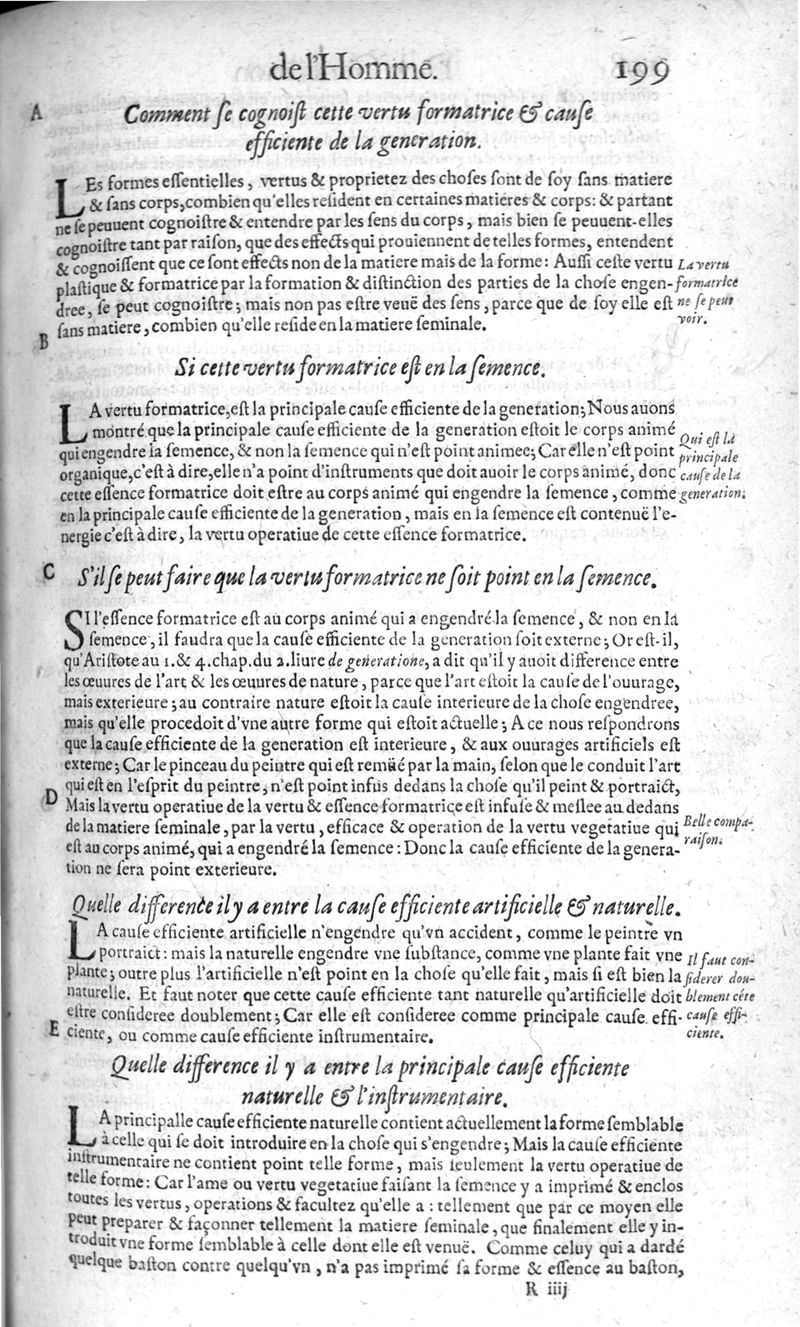 de l'Homme. 199
A
Comment ſe cognoiſt cette vertu formatrice & cauſe
efficiente de la generation.
LEs formes eſſentielles, vertus & proprietez des choſes ſont de ſoy ſans matiere
& ſans corps, combien qu'elles reſident en certaines matieres & corps: & partant
ne ſe peuuent cognoiſtre & entendre par les ſens du corps, mais bien ſe peuuent-elles
cognoiſtre tant par raiſon, que des effects qui prouiennent de telles formes, entendent
& cognoiſſent que ce ſont effects non de la matiere mais de la forme: Auſſi ceſte vertu
plaſtique & formatrice par la formation & diſtinction des parties de la choſe engen-
dree, ſe peut cognoiſtre; mais non pas eſtre veuë des ſens, parce que de ſoy elle eſt
ſans matiere, combien qu'elle reſide en la matiere ſeminale.
La vertu
formatrice
ne ſe peut
voir.
B
Si cette vertu formatrice eſt en la ſemence.
LA vertu formatrice, eſt la principale cauſe efficiente de la generation; Nous auons
montré que la principale cauſe efficiente de la generation eſtoit le corps animé
qui engendre la ſemence, & non la ſemence qui n'eſt point animee; Car elle n'eſt point
organique, c'eſt à dire, elle n'a point d'inſtruments que doit auoir le corps animé, donc
cette eſſence formatrice doit eſtre au corps animé qui engendre la ſemence, comme
en la principale cauſe efficiente de la generation, mais en la ſemence eſt contenuë l'e-
nergie c'eſt à dire, la vertu operatiue de cette eſſence formatrice.
Qui eſt la
principale
cauſe de la
generation.
C
S'il ſe peut faire que la vertu formatrice ne ſoit point en la ſemence.
SI l'eſſence formatrice eſt au corps animé qui a engendré la ſemence, & non en la
ſemence, il faudra que la cauſe efficiente de la generation ſoit externe; Or eſt-il,
qu'Ariſtote au 1. & 4. chap. du 2. liure de generatione, a dit qu'il y auoit difference entre
les œuures de l'art & les œuures de nature, parce que l'art eſtoit la cauſe de l'ouurage,
mais exterieure; au contraire nature eſtoit la cauſe interieure de la choſe engendree,
mais qu'elle procedoit d'vne autre forme qui eſtoit actuelle; A ce nous reſpondrons
que la cauſe efficiente de la generation eſt interieure, & aux ouurages artificiels eſt
externe; Car le pinceau du peintre qui eſt remüé par la main, ſelon que le conduit l'art
qui eſt en l'eſprit du peintre, n'eſt point infus dedans la choſe qu'il peint & portraict,
D
Mais la vertu operatiue de la vertu & eſſence formatrice eſt infuſe & meſlee au dedans
de la matiere ſeminale, par la vertu, efficace & operation de la vertu vegetatiue qui
eſt au corps animé, qui a engendré la ſemence: Donc la cauſe efficiente de la genera-
tion ne ſera point exterieure.
Belle compa-
raiſon.
Quelle difference il y a entre la cauſe efficiente artificielle & naturelle.
LA cauſe efficiente artificielle n'engendre qu'vn accident, comme le peintre vn
portraict: mais la naturelle engendre vne ſubſtance, comme vne plante fait vne
plante; outre plus l'artificielle n'eſt point en la choſe qu'elle fait, mais ſi eſt bien la
naturelle. Et faut noter que cette cauſe efficiente tant naturelle qu'artificielle doit
eſtre conſideree doublement; Car elle eſt conſideree comme principale cauſe effi-
ciente, ou comme cauſe efficiente inſtrumentaire.
Il faut con-
ſiderer dou-
blement céte
cauſe effi-
ciente.
E
Quelle difference il y a entre la principale cauſe efficiente
naturelle & l'inſtrumentaire.
LA principalle cauſe efficiente naturelle contient actuellement la forme ſemblable
à celle qui ſe doit introduire en la choſe qui s'engendre; Mais la cauſe efficiente
inſtrumentaire ne contient point telle forme, mais ſeulement la vertu operatiue de
telle forme: Car l'ame ou vertu vegetatiue faiſant la ſemence y a imprimé & enclos
toutes les vertus, operations & facultez qu'elle a: tellement que par ce moyen elle
peut preparer & façonner tellement la matiere ſeminale, que finalement elle y in-
troduit vne forme ſemblable à celle dont elle eſt venuë. Comme celuy qui a dardé
quelque baſton contre quelqu'vn, n'a pas imprimé ſa forme & eſſence au baſton,
R iiij